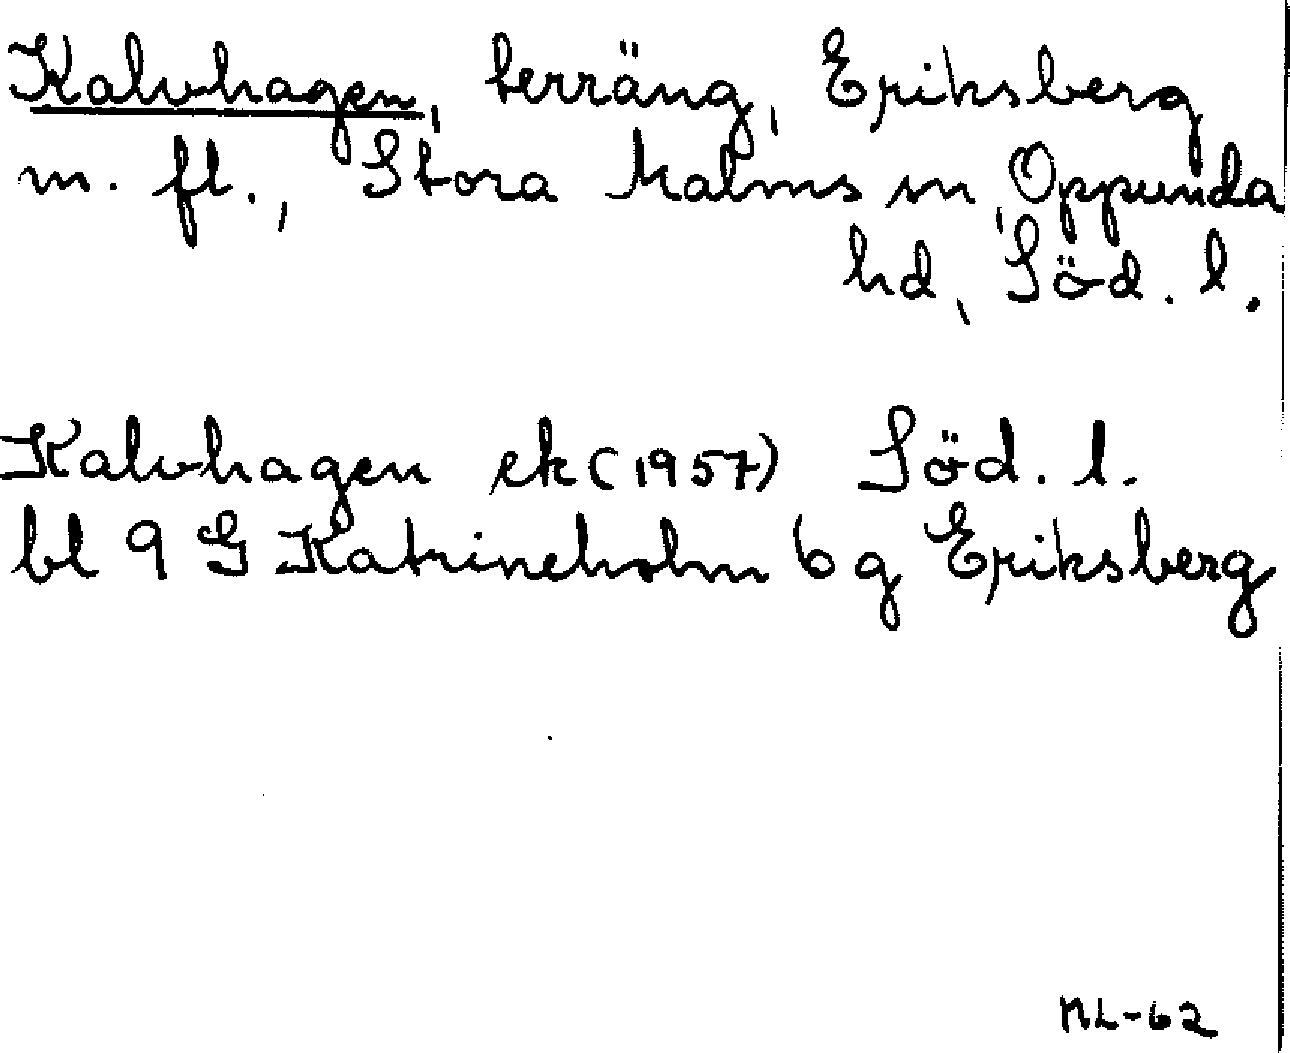 Kalvhagen, terräng, Eriksberg
m. fl., Stora Malms sn, Oppunda
hd, Söd. l.
Kalvhagen ek (1957) Söd. l.
bl 9 G Katrineholm 6 g Eriksberg
NL-62